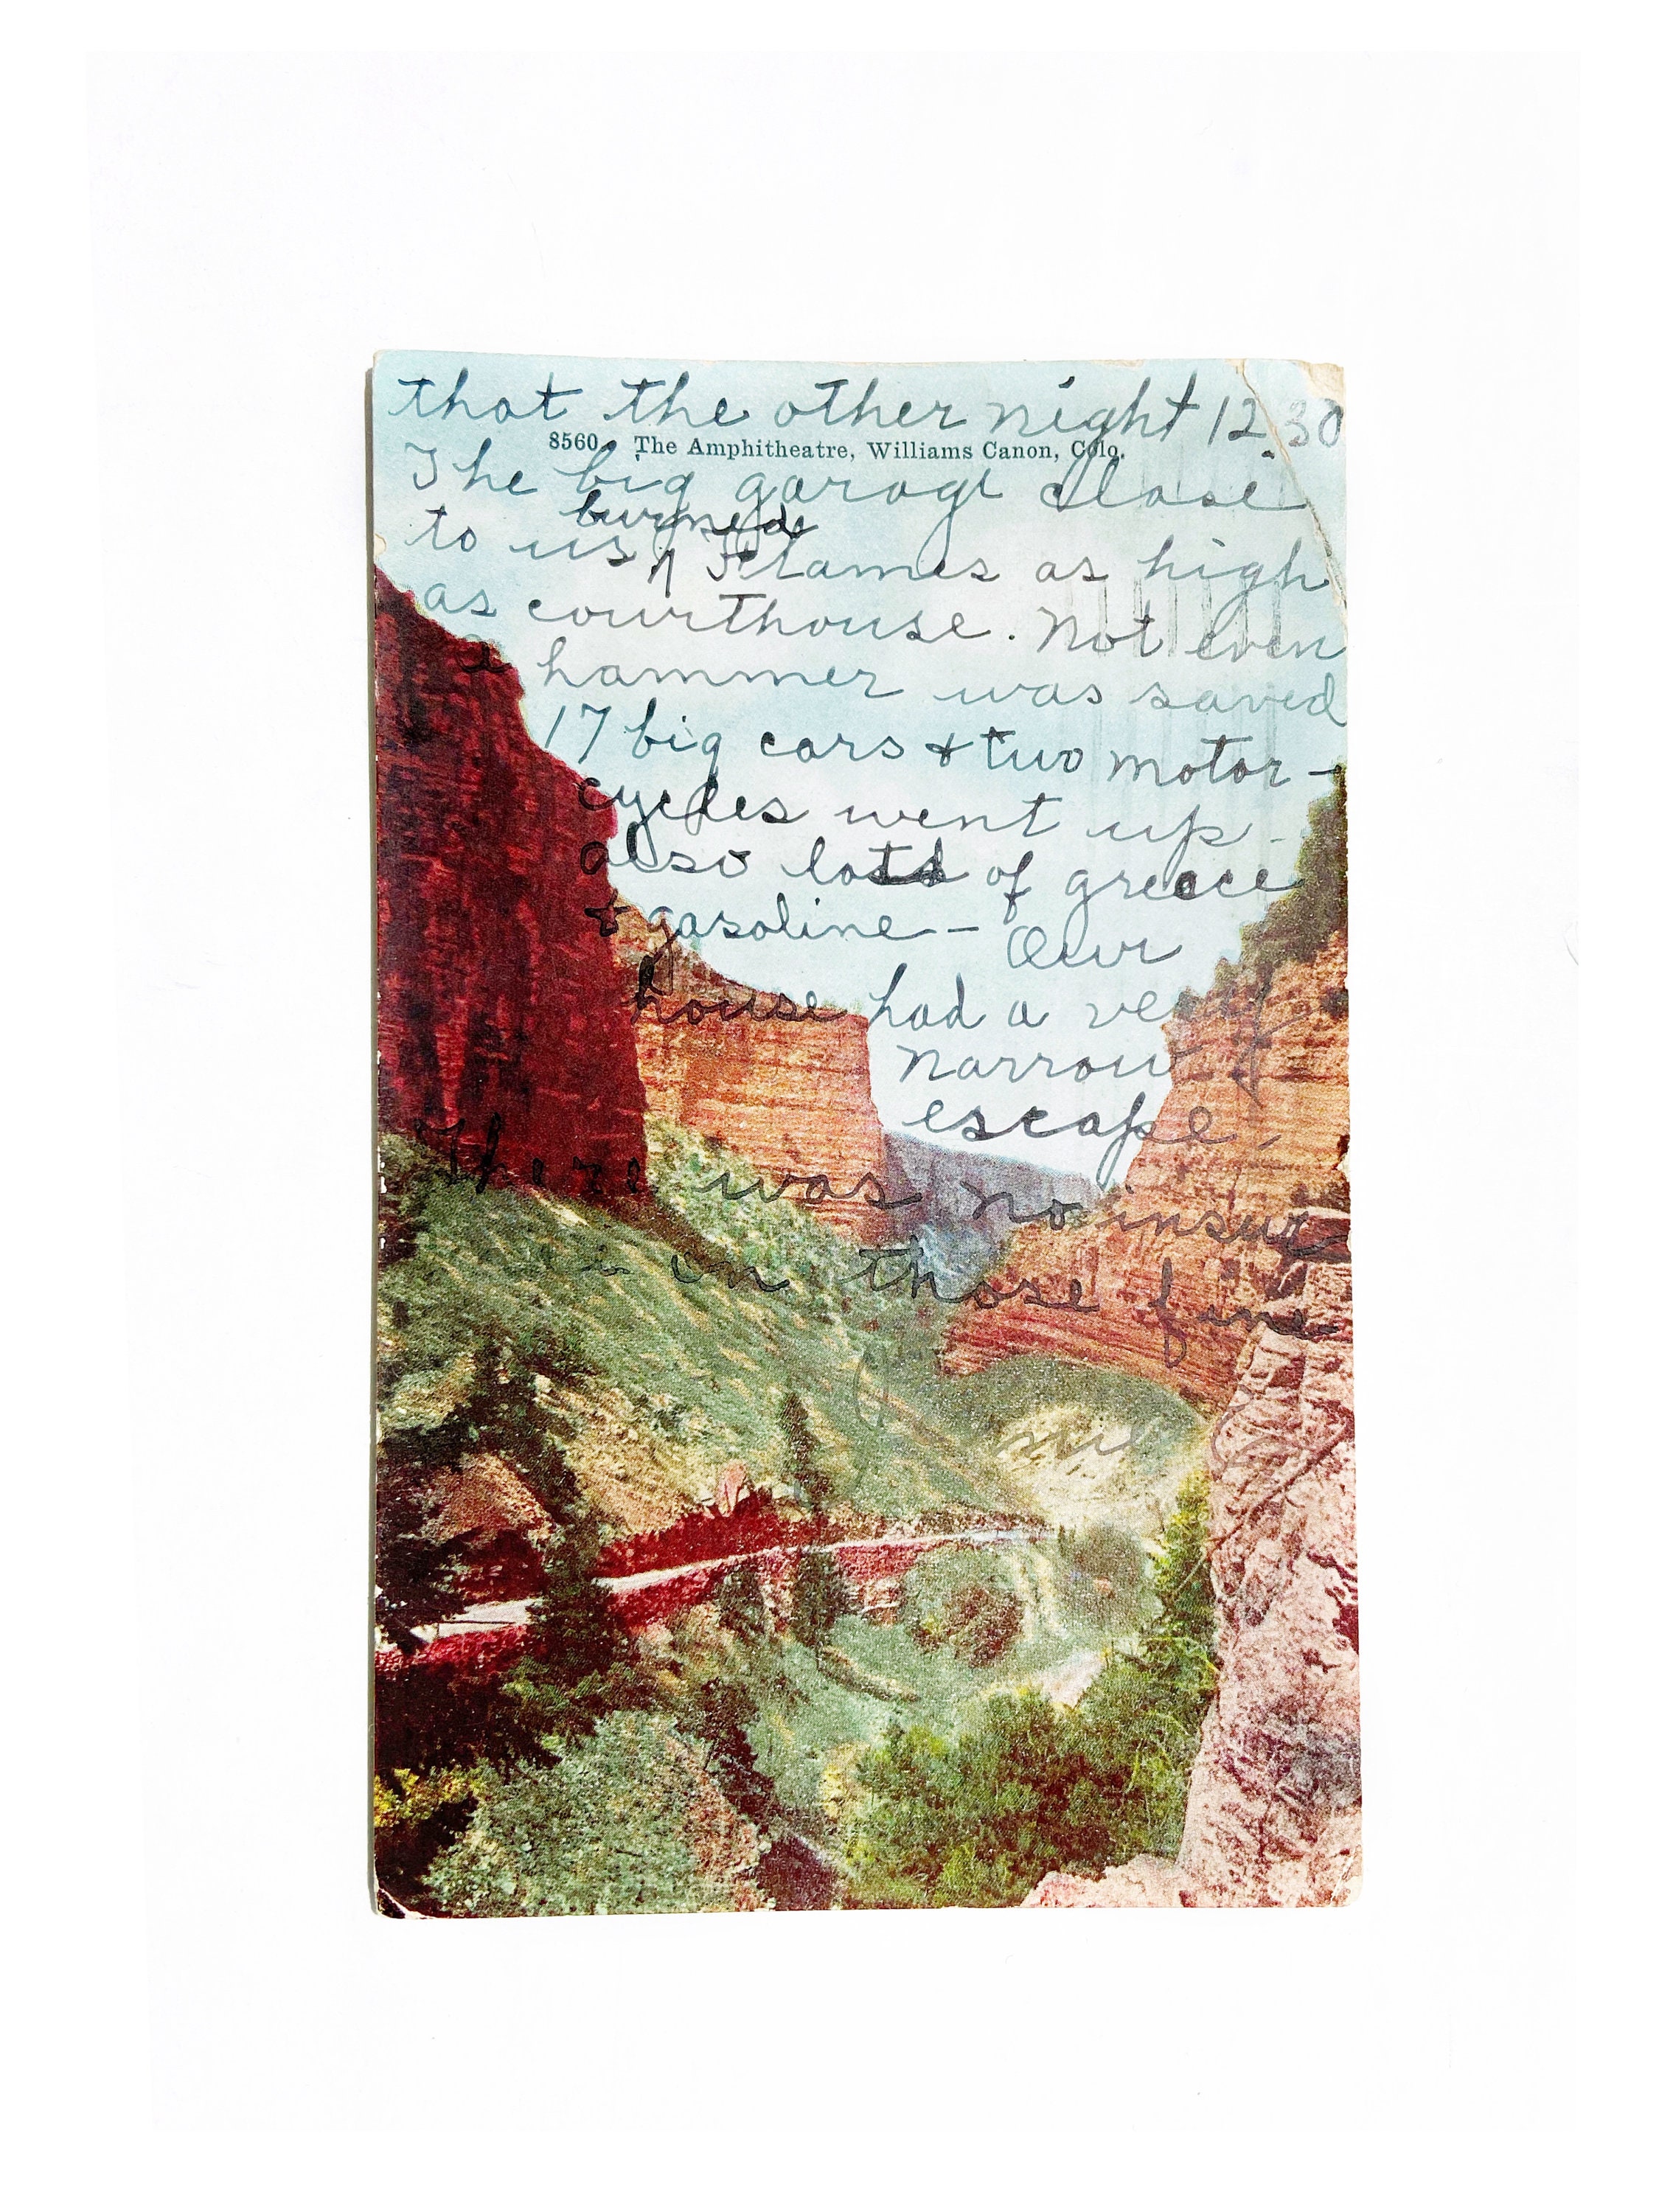 that the other night 12.30
8560. The Amphitheatre, Williams Canon, Colo.
The big garage close
burned
to us ^ Flames as high
as courthouse. Not even
a hammer was saved
17 big cars & two motor-
cycles went up -
also lots of greece
& gasoline - Our
house had a very
narrow
escape.
There was no insur
in those fine